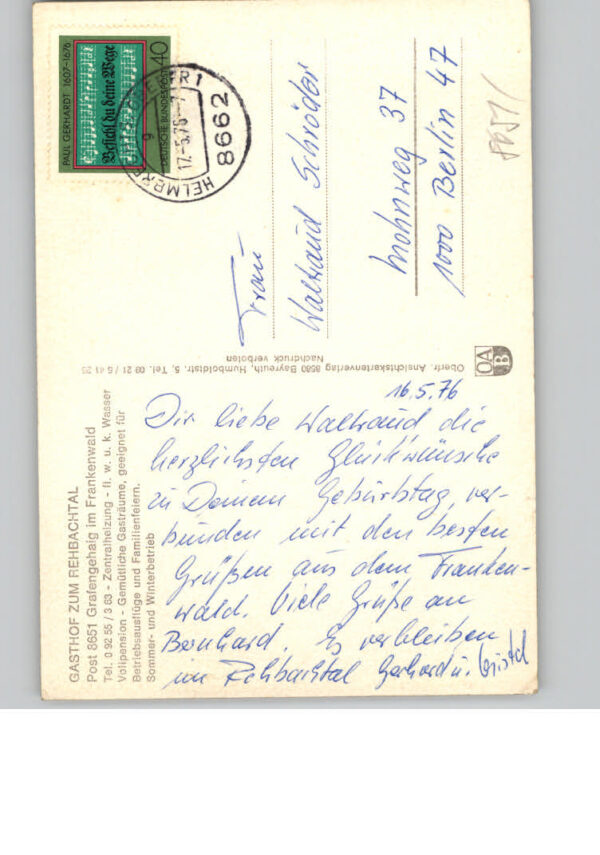 PAUL GERHARDT 1607-1676
Befiehl du deine Wege
DEUTSCHE BUNDESPOST 40
HELMBRECHTS 1
17.-5.76-7
8662
8651
Frau
Waltraud Schröder
Mohnweg 37
1000 Berlin 47
Oberfr. Ansichtskartenverlag 8580 Bayreuth, Humboldtstr. 5, Tel. 09 21 / 5 41 25
Nachdruck verboten
OA
B
GASTHOF ZUM REHBACHTAL
Post 8651 Grafengehaig im Frankenwald
Tel. 0 92 55 / 3 63 - Zentralheizung - fl. w. u. k. Wasser
Vollpension - Gemütliche Gasträume, geeignet für
Betriebsausflüge und Familienfeiern.
Sommer- und Winterbetrieb
16.5.76
Dir liebe Waltraud die
herzlichsten Glückwünsche
zu Deinem Geburtstag, ver-
bunden mit den besten
Grüßen aus dem Franken-
wald. Viele Grüße an
Bernhard. Es verbleiben
im Rehbachtal Gerhard u. Christel